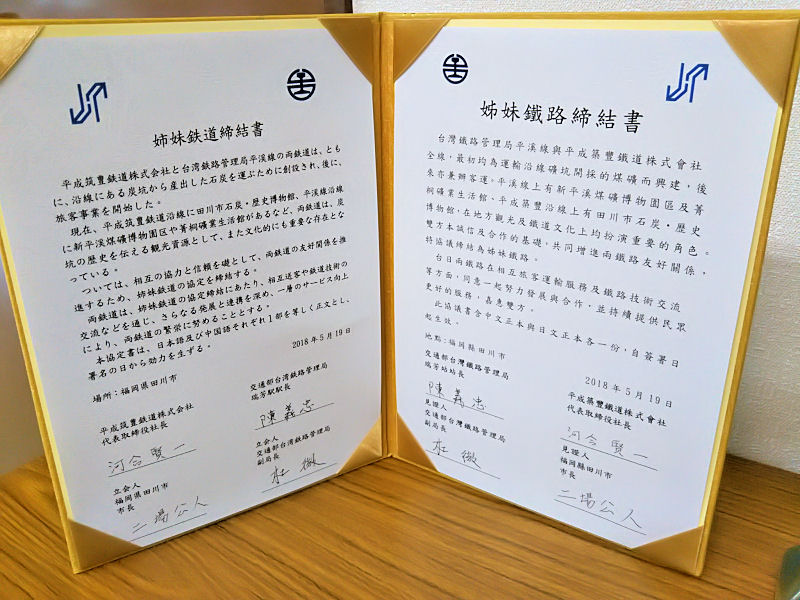 姉妹鉄道締結書
平成筑豊鉄道株式会社と台湾鉄路管理局平渓線の両鉄道は、とも
に、沿線にある炭坑から産出した石炭を運ぶために創設され、後に、
旅客事業を開始した。
現在、平成筑豊鉄道沿線に田川市石炭・歴史博物館、平渓線沿線
に新平渓煤礦博物園区や菁桐礦業生活館があるなど、両鉄道は、炭
坑の歴史を伝える観光資源として、また文化的にも重要な存在とな
っている。
ついては、相互の協力と信頼を礎として、両鉄道の友好関係を推
進するため、姉妹鉄道の協定を締結する。
両鉄道は、姉妹鉄道の協定締結にあたり、相互送客や鉄道技術の
交流などを通じ、さらなる発展と連携を深め、一層のサービス向上
により、両鉄道の繁栄に努めることとする。
本協定書は、日本語及び中国語それぞれ1部を等しく正文とし、
署名の日から効力を生ずる。
2018年5月19日
場所：福岡県田川市
平成筑豊鉄道株式会社
代表取締役社長
河合賢一
立会人
福岡県田川市
市長
二場公人
交通部台湾鉄路管理局
瑞芳駅駅長
陳義忠
立会人
交通部台湾鉄路管理局
副局長
杜微
姊妹鐵路締結書
台灣鐵路管理局平溪線與平成築豐鐵道株式會社
全線，最初均為運輸沿線礦坑開採的煤礦而興建，後
來亦兼辦客運。平溪線上有新平溪煤礦博物園區及菁
桐礦業生活館，平成築豐沿線上有田川市石炭・歷史
博物館，在地方觀光及鐵道文化上均扮演重要的角色。
雙方本誠信及合作的基礎，共同增進兩鐵路友好關係，
特協議締結為姊妹鐵路。
台日兩鐵路在相互旅客運輸服務及鐵路技術交流
等方面，同意一起努力發展與合作，並持續提供民眾
更好的服務，嘉惠雙方。
此協議書含中文正本與日文正本各一份，自簽署日
起生效。
2018年5月19日
地點：福岡縣田川市
交通部台灣鐵路管理局
瑞芳站站長
陳義忠
見證人
交通部台灣鐵路管理局
副局長
杜微
平成築豐鐵道株式會社
代表取締役社長
河合賢一
見證人
福岡縣田川市
市長
二場公人